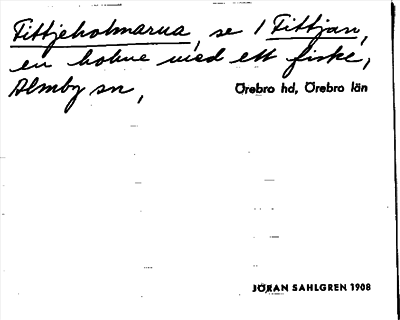 Fittjeholmarna, se 1 Fittjan,
en holme med ett fiske,
Almby sn, Örebro hd, Örebro län
JÖRAN SAHLGREN 1908